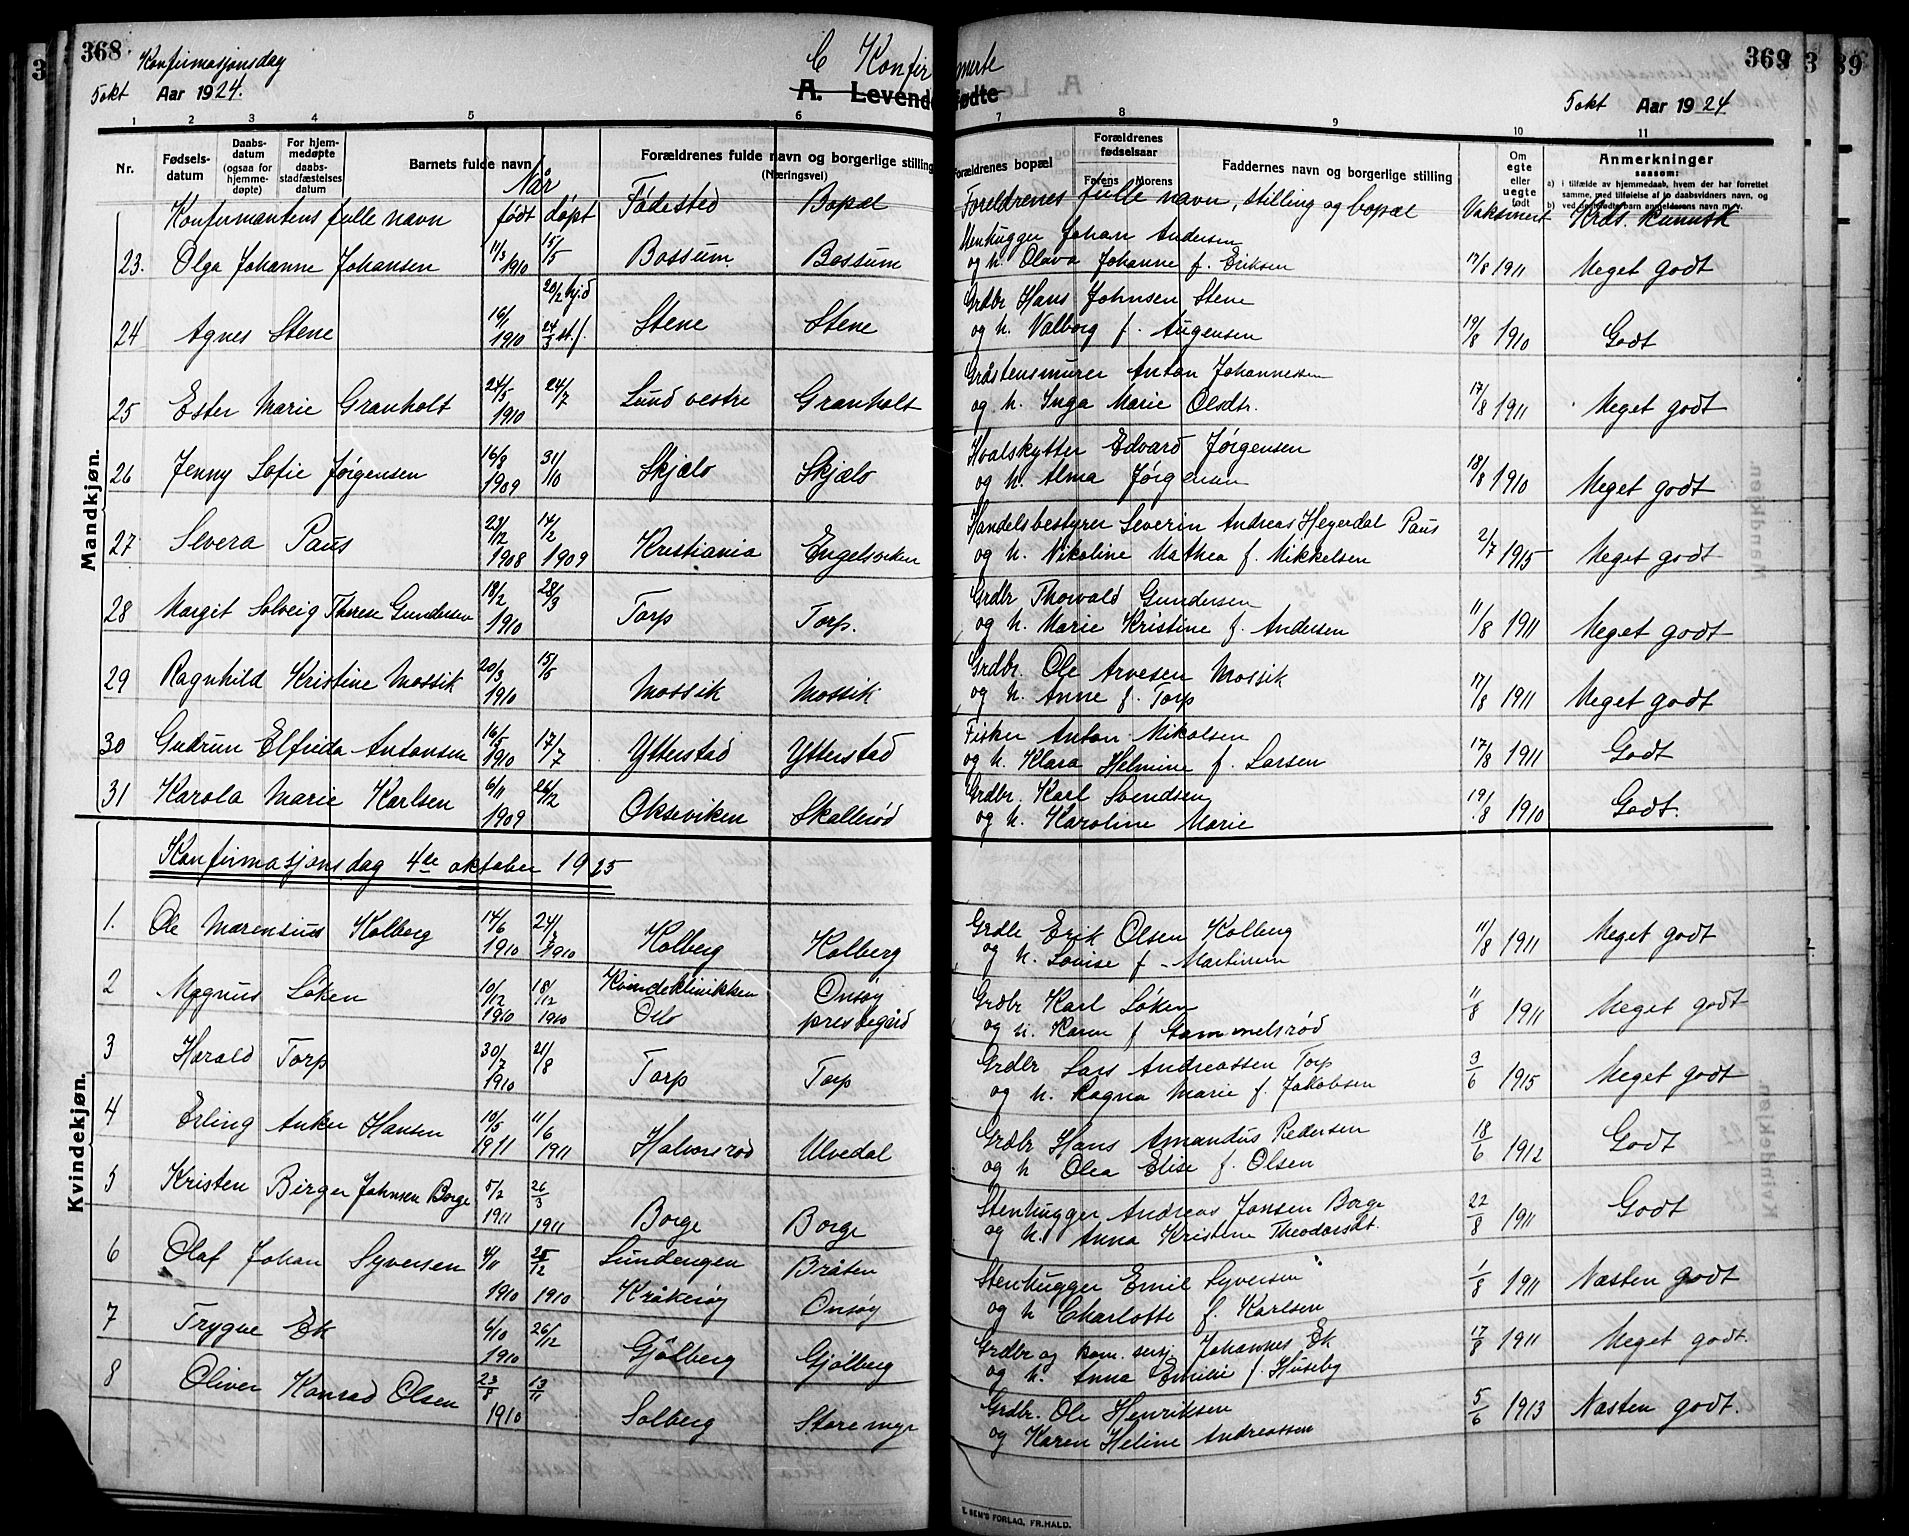 368
Konfirmasjonsdag
5 okt Aar 1924.
C Konfir
A. Levende
1 2 3 4 5 6
Nr. Fødsels-datum Daabs-datum (ogsaa for hjemme-døpte) For hjem-medøpte daabs-stadfæstelses datum Barnets fulde navn Forældrenes fulde navn og borgerlige stilling (Næringsvei)
Når
Konfirmantens fulle navn født døpt Fødested Bopæl
Mandkjøn.
23. Olga Johanne Johansen 11/3 1910 15/5 Bossum Bossum
24 Agnes Stene 16/1 1910 20/2 hj.d 24/3 st.f. Stene Stene
25 Ester Marie Granholt 24/5 1910 24/7 Lund vestre Granholt
26 Jenny Sofie Jørgensen 16/8 1909 31/10 Skjælø Skjælø
27 Severa Paus 23/12 1908 14/2 1909 Kristiania Engelsviken
28 Margit Solveig Therese Gundersen 18/2 1910 28/3 Torp Torp.
29 Ragnhild Kristine Mossik 20/3 1910 15/5 Mossik Mossik
30 Gudrun Elfrida Antonsen 16/5 1910 17/7 Ytterstad Ytterstad
31 Karola Marie Karlsen 6/11 1909 26/12 Okseviken Skallerød
Konfirmasjonsdag 4de oktober 1925
Kvindekjøn.
1. Ole Marensius Kolberg 14/6 1910 24/ 1910 Kolberg Kolberg
2 Magnus Løken 10/12 1910 18/12 1910 Kvindeklinikken Oslo Onsøy prestegård
3 Harald Torp 30/7 1910 21/8 Torp Torp
4 Erling Anker Hansen 10/5 1911 11/6 1911 Halvorsrød Ulvedal
5 Kristen Birger Johnsen Borge 5/2 1911 26/3 1911 Borge Borge
6 Olaf Johan Syversen 4/11 1910 25/12 1910 Lundengen Kråkerøy Bråten Onsøy
7 Trygve Ek 4/10 1910 26/12 Gjølberg Gjølberg
8 Oliver Konrad Olsen 23/8 1910 13/11 Solberg Storemyr
369
merte
fødte
5 okt Aar 1924
7 8 9 10 11
Forældrenes bopæl Forældrenes fødselsaar Farens Morens Faddernes navn og borgerlige stilling Om egte eller uegte født Anmerkninger saasom:
a) i tilfælde av hjemmedaab, hvem der har forrettet samme, med tilføielse af to daabsvidners navn, og
b) ved dødfødte barn anmelderens navn m. v.
Foreldrenes fulle navn, stilling og bopæl Vaksinert Krds. kunnsk
Stenhugger Johan Andersen
og h. Olava Johanne f. Eriksen 17/8 1911 Meget godt
Grdbr Hans Johnsen Stene
og h. Valborg f. Augensen 19/8 1910 Godt
Gråstensmurer Anton Johannessen
og h. Inga Marie Olsdtr. 17/8 1911 Meget godt
Hvalskytter Edvard Jørgensen
og h. Alma Jørgensen 18/8 1910 Meget godt
Handelsbestyrer Severin Andreas Heyerdal Paus
og h. Nikoline Mathea f. Mikkelsen 2/7 1915 Meget godt
Grdbr Thorvald Gundersen
og h. Marie Kristine f. Andersen 11/8 1911 Meget godt
Grdbr. Ole Arvesen Mossik
og h. Anne f. Torp 17/8 1911 Meget godt
Fisker Anton Nikolsen
og h. Klara Helmine f. Larsen 17/8 1911 Godt
Grdbr. Karl Svendsen
og h. Karoline Marie 19/8 1910 Godt.
Grdbr Erik Olsen Kolberg
og h. Lovise f. Martinsen 11/8 1911 Meget godt
Grdbr Karl Løken
og h. Karen f Gammelsrød 11/8 1911 Meget godt
Grdbr Lars Andreassen Torp
og h. Ragna Marie f. Jakobsen 3/6 1915 Meget godt
Grdbr Hans Amandus Pedersen
og h Olea Elise f. Olsen 18/6 1912 Godt
Stenhugger Andreas Jansen Borge
og h. Anna Kristine Theodorsdt. 22/8 1911 Godt
Stenhugger Emil Syversen
og h Charlotte f. Karlsen 1/8 1911 Næsten godt
Grdbr og Johannes Ek
og h. Anna Emilie f. Huseby 17/8 1911 Meget godt.
Grdbr. Ole Henriksen
og Karen Heline Andreassen 5/6 1913 Næsten godt.
E. SEM'S FORLAG, FR.HALD.